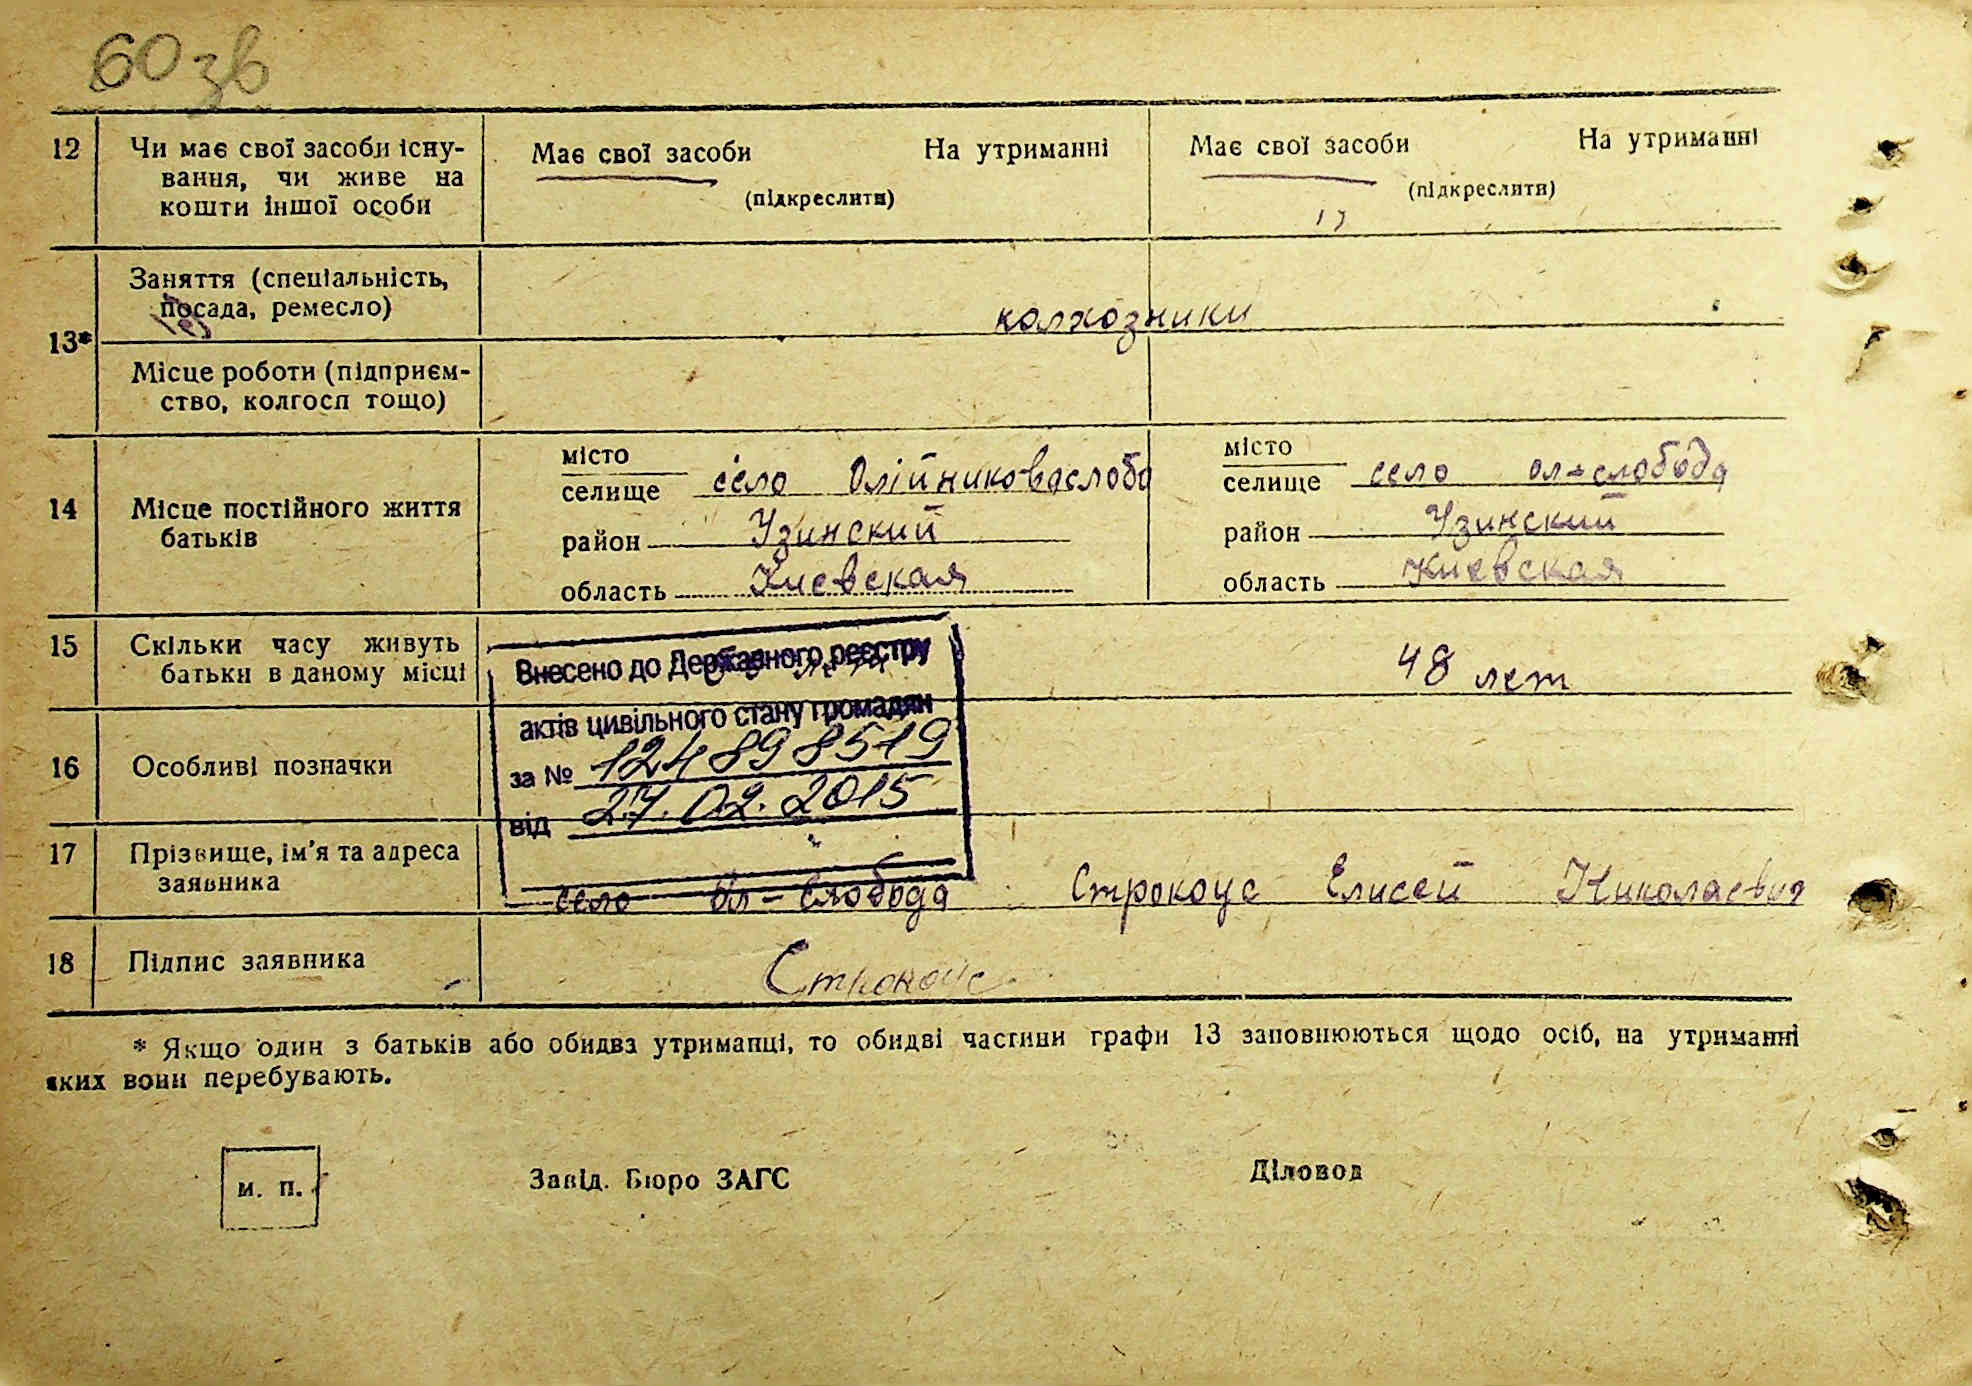 60 зв
12 Чи має свої засоби існу- Має свої засоби На утриманні Має свої засоби На утриманні
вання, чи живе на (підкреслити) (підкреслити)
кошти іншої особи
Заняття (спеціальність,
посада, ремесло) колхозники
13*
Місце роботи (підприєм-
ство, колгосп тощо)
місто місто
селище село Олійниковаслобо селище село Ол-слобода
14 Місце постійного життя район Узинский район Узинский
батьків
область Киевская область Киевская
15 Скільки часу живуть 48 лет
батьки в даному місці
Внесено до Державного реєстру
актів цивільного стану громадян
16 Особливі позначки за № 124898519
від 27.02.2015
17 Прізвище, ім'я та адреса
заявника село Ол-Слобода Строкоус Елисей Николаевич
18 Підпис заявника Строкоус
* Якщо один з батьків або обидва утриманці, то обидві частини графи 13 заповнюються щодо осіб, на утриманні
яких вони перебувають.
м. п. Завід. Бюро ЗАГС Діловод